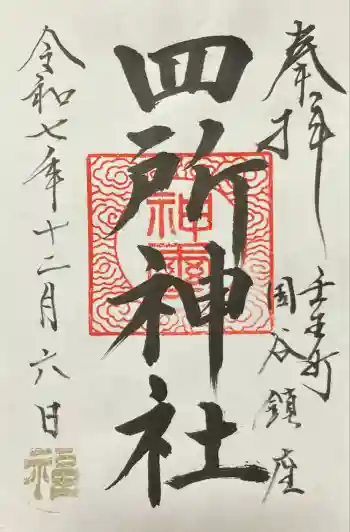 奉拝
壬生町
国谷鎮座
四所神社
神璽
令和七年十二月六日
福